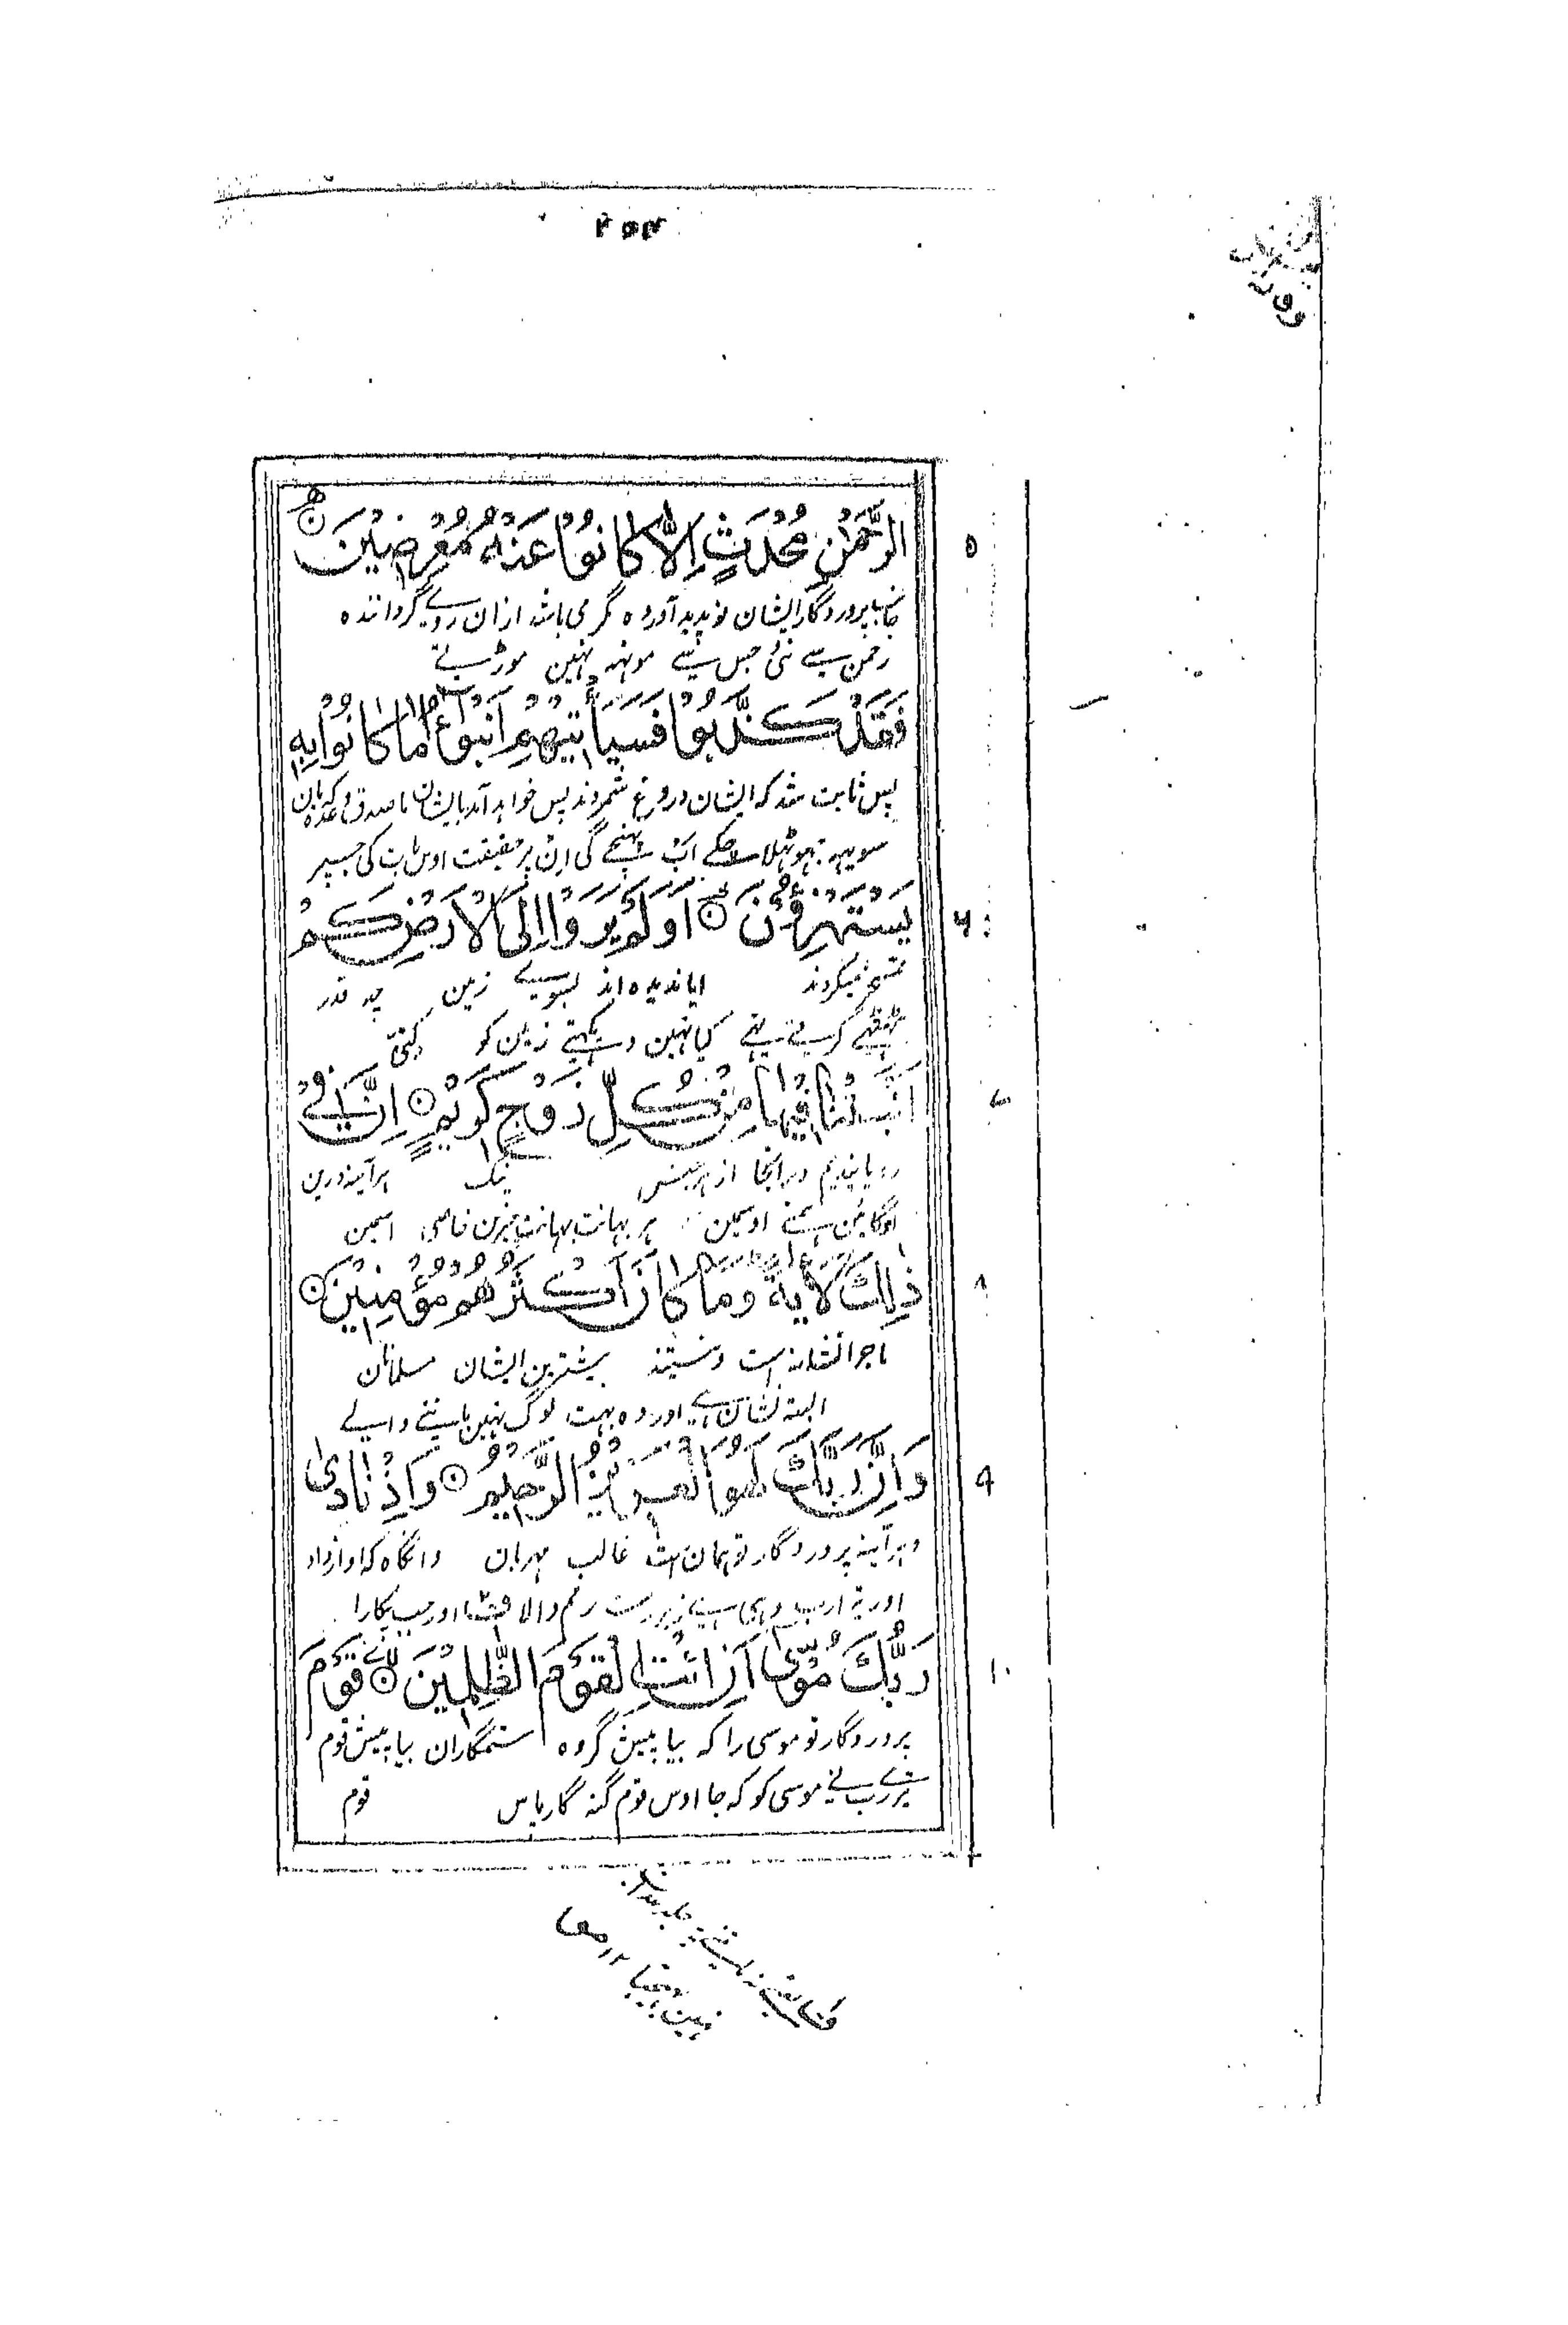 ۲۵۴
الرَّحْمٰنِ مُحْدَثٍ اِلَّا كَانُوْا عَنْهُ مُعْرِضِيْنَ ۝ ۵
جانب پروردگار ایشان نو پدید آورده مگر می باشند ازان روے گردانده
رحمن سے نئی جس سے مونہہ نہین موڑتے
فَقَدْ كَذَّبُوْا فَسَيَأْتِيْهِمْ اَنْۢبٰٓؤُا مَا كَانُوْا بِهٖ
پس ثابت شد که ایشان دروغ شمردند پس خواهد آمد بایشان صدق وعده که بآن
سو یہہ جہوٹہلا چکے اب پہنچے گی ان پر حقیقت اوس بات کی جسپر
يَسْتَهْزِءُوْنَ ۝ اَوَلَمْ يَرَوْا اِلَى الْاَرْضِ كَمْ ۶
تمسخر میکردند ایا ندیده اند بسوے زمین چه قدر
ٹہٹہے کرتے تہے کیا نہین دیکہتے زمین کو کتنی
اَنْۢبَتْنَا فِيْهَا مِنْ كُلِّ زَوْجٍ كَرِيْمٍ ۝ اِنَّ فِيْ ۷
رویانیدیم درانجا از هر جنس نیک هرآینه درین
اوگائین ہمنے اوسمین ہر بہانت بہانت چیزین خاصی اسمین
ذٰلِكَ لَاٰيَةً وَمَا كَانَ اَكْثَرُهُمْ مُؤْمِنِيْنَ ۝ ۸
ماجرا نشانه است و نیستند بیشترین ایشان مسلمانان
البتہ نشان ہے اور وہ بہت لوگ نہین ماننے والے
وَاِنَّ رَبَّكَ لَهُوَ الْعَزِيْزُ الرَّحِيْمُ ۝ وَاِذْ نَادٰى ۹
و هرآینه پروردگار تو همان است غالب مهربان و انگاه که آواز داد
اور تیرا رب وہی ہے زبردست رحم والا اور جب پکارا
رَبُّكَ مُوْسٰٓى اَنِ ائْتِ الْقَوْمَ الظّٰلِمِيْنَ ۝ قَوْمَ ۱۰
پروردگار تو موسی را که بیا پیش گروه ستمگاران بیا پیش قوم
تیرے رب نے موسی کو کہ جا اوس قوم گنہ گار پاس قوم